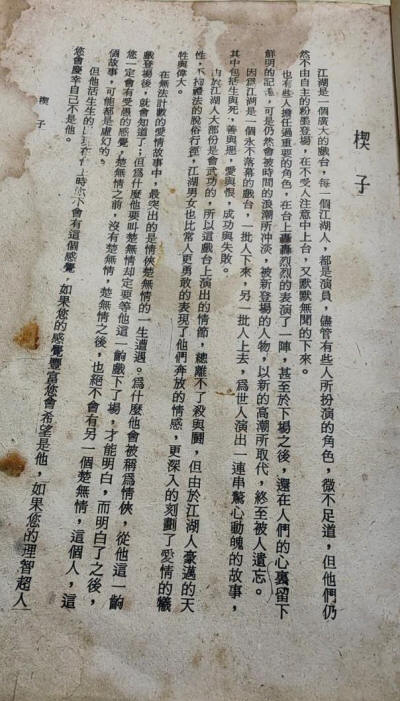 楔子
江湖是一個廣大的戲台，每一個江湖人，都是演員，儘管有些人所扮演的角色，微不足道，但他們仍
然不由自主的粉墨登場，在不受人注意中上台，又默默無聞的下來。
也有些人擔任過重要的角色，在台上轟轟烈烈的表演了一陣，甚至於下場之後，還在人們的心裏留下
鮮明的記憶，可是仍然會被時間的浪潮所沖淡，被新登場的人物，以新的高潮所取代，終至被人遺忘。
因爲江湖是一個永不落幕的戲台，一批人下來，另一批人上去，爲世人演出一連串驚心動魄的故事，
其中包括生與死，善與惡，愛與恨，成功與失敗。
由於江湖人大部份是會武功的，所以這戲台上演出的情節，總離不了殺與鬪，但由於江湖人豪邁的天
性，不拘禮法的脫俗行徑，江湖男女也比常人更勇敢的表現了他們奔放的情感，更深入的刻劃了愛情的犧
牲與偉大。
在無法計數的愛情故事中，最突出的是情俠楚無情的一生遭遇。爲什麼他會被稱爲情俠，從他這一齣
戲登場後，就會知道了；但爲什麼他要叫楚無情却定要等他這一齣戲下了場，才能明白，而明白了之後，
您一定會有受愚的感覺，楚無情之前，沒有楚無情，楚無情之後，也絕不會有另一個楚無情，這個人，這
個故事，可能都是虛幻的。
但他活生生的出現在 時您不會有這個感覺，如果您的感覺豐富您會希望是他，如果您的理智超人
您會慶幸自己不是他。
楔子